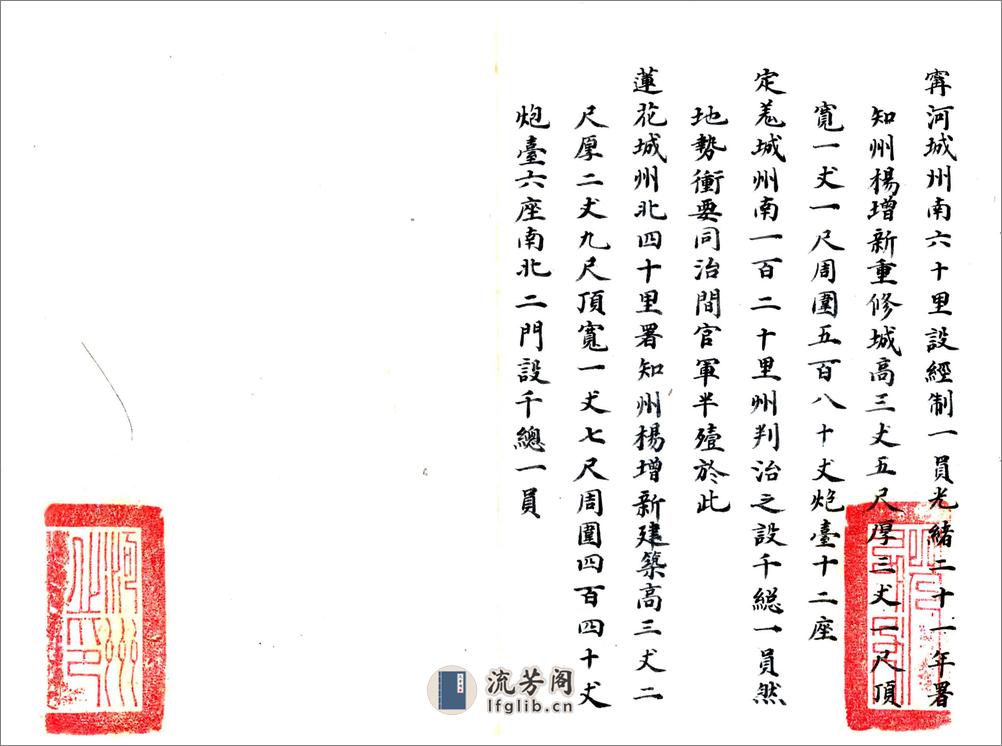 寗河城州南六十里設經制一員光緒二十一年署
知州楊增新重修城高三丈五尺厚三丈一尺頂
寬一丈一尺周圍五百八十丈炮臺十二座
定羗城州南一百二十里州判治之設千総一員然
地勢衝要同治間官軍半殪於此
蓮花城州北四十里署知州楊增新建築高三丈二
尺厚二丈九尺頂寬一丈七尺周圍四百四十丈
炮臺六座南北二門設千總一員
河州
之印
流芳阁
lfglib.cn